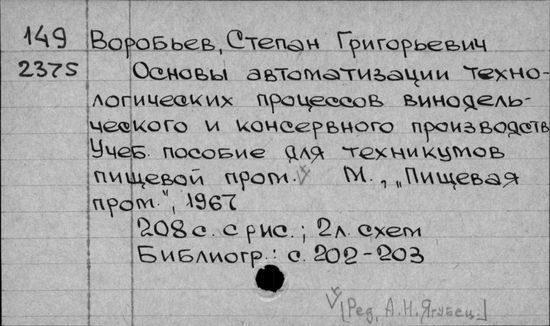 149 Воробьев, Степан Григорьевич
2375 Основы автоматизации техно-
логических процессов винодель-
ческого и консервного производств
Учеб. пособие для техникумов
пищевой пром. М., „Пищевая
пром.", 1967
208 с. с рис.; 2 л. схем
Библиогр.: с. 202-203
[Ред. А.Н. Ягубец.]